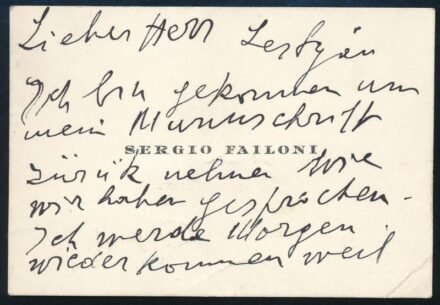 Lieber Herr
Ich bin gekommen um
mein Manuschrift
SERGIO FAILONI
zurük nehmen Wie
wir haben gesprochen.
Ich werde Morgen
wieder kommen weil